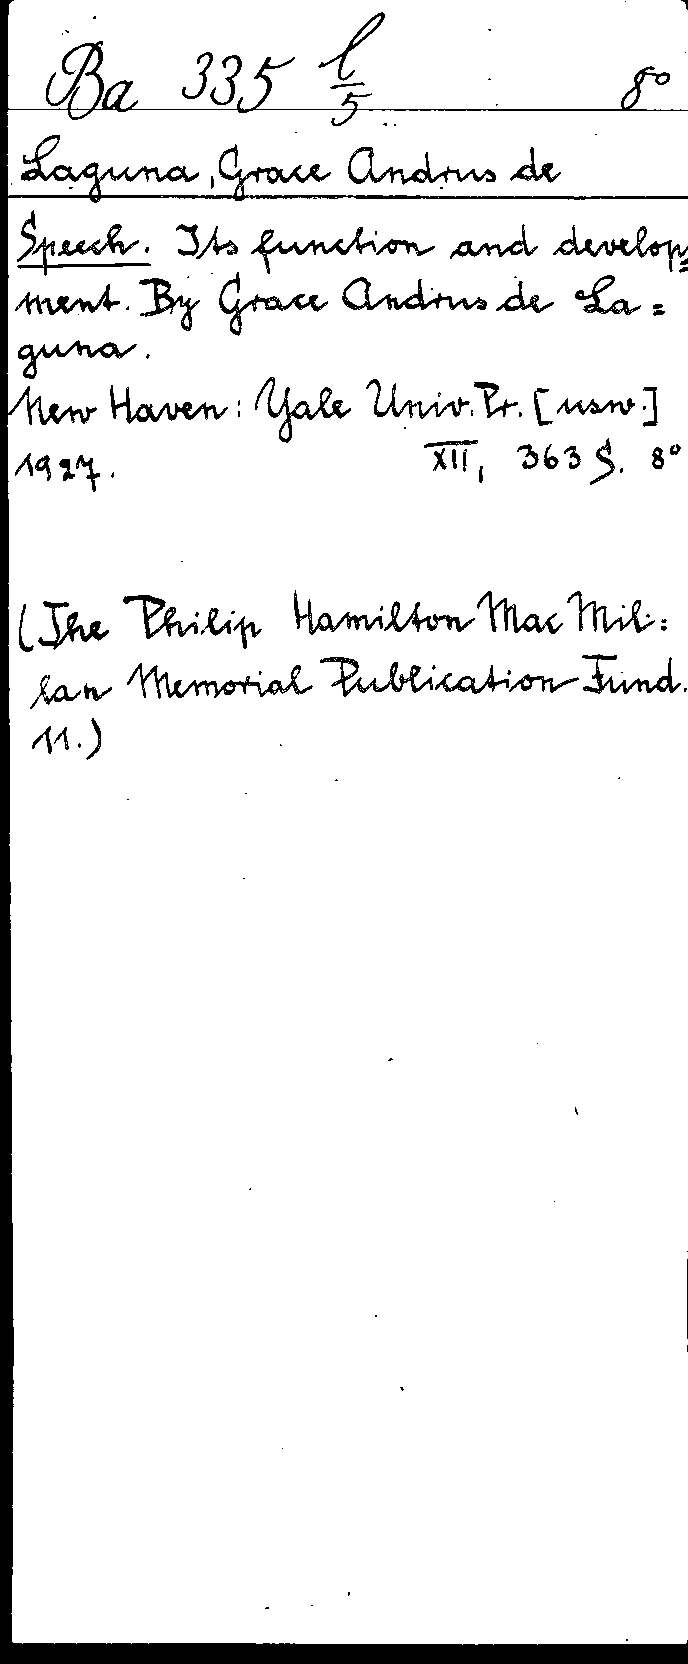 Ba 335 l/5 8°
Laguna, Grace Andrus de
Speech. Its function and develop=
ment. By Grace Andrus de La=
guna.
New Haven: Yale Univ. Pr. [usw.]
1927. XII, 363 S. 8°
(The Philip Hamilton Mac Mil=
lan Memorial Publication Fund.
11.)